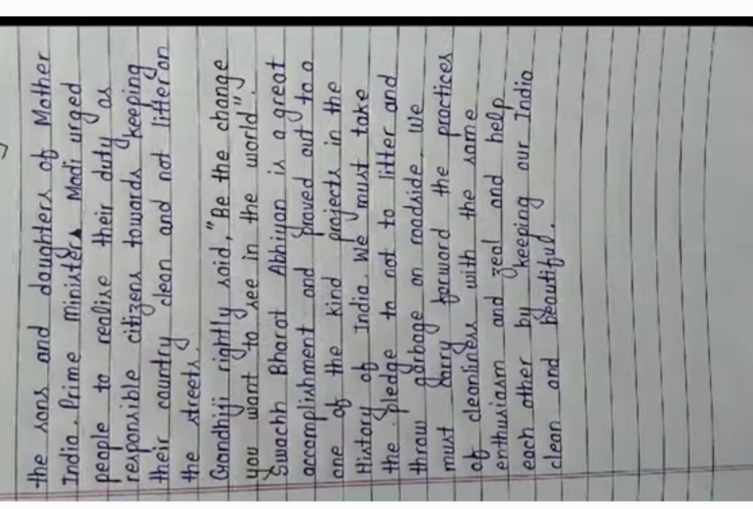 the sons and daughters of Mother
India. Prime minister Modi urged
people to realise their duty as
responsible citizens towards keeping
their country clean and not litter on
the streets.
Grandhiji rightly said, "Be the change
you want to see in the world".
Swachh Bharat Abhiyan is a great
accomplishment and proved out to a
one of the kind projects in the
History of India. We must take
the pledge to not to litter and
throw garbage on roadside. We
must carry forward the practices
of cleanliness with the same
enthusiasm and zeal and help
each other by keeping our India
clean and beautiful.